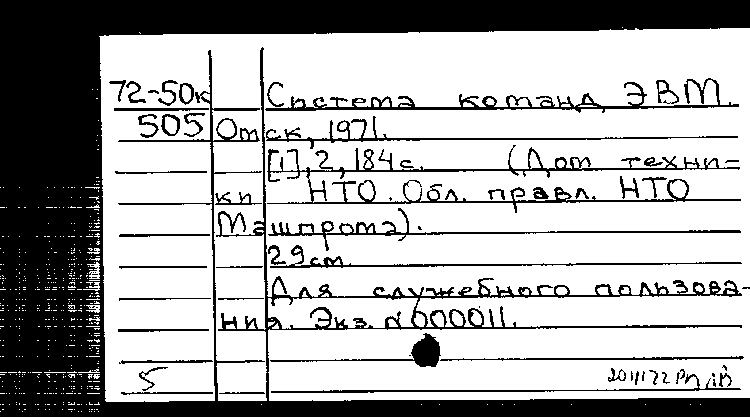 72-50к Система команд ЭВМ.
505 Омск, 1971.
[1], 2, 184 с. (Дом техни-
ки НТО. Обл. правл. НТО
Машпрома).
29 см.
Для служебного пользова-
ния. Экз. N 000011.
5